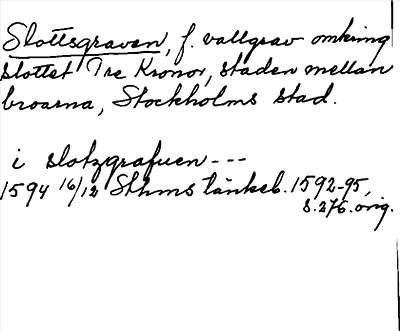 Slottsgraven, f. vallgrav omkring
slottet Tre Kronor, staden mellan
broarna, Stockholms stad.
i slotzgrafuen ---
1594 16/12 Sthms tänkeb. 1592-95,
s. 276. orig.